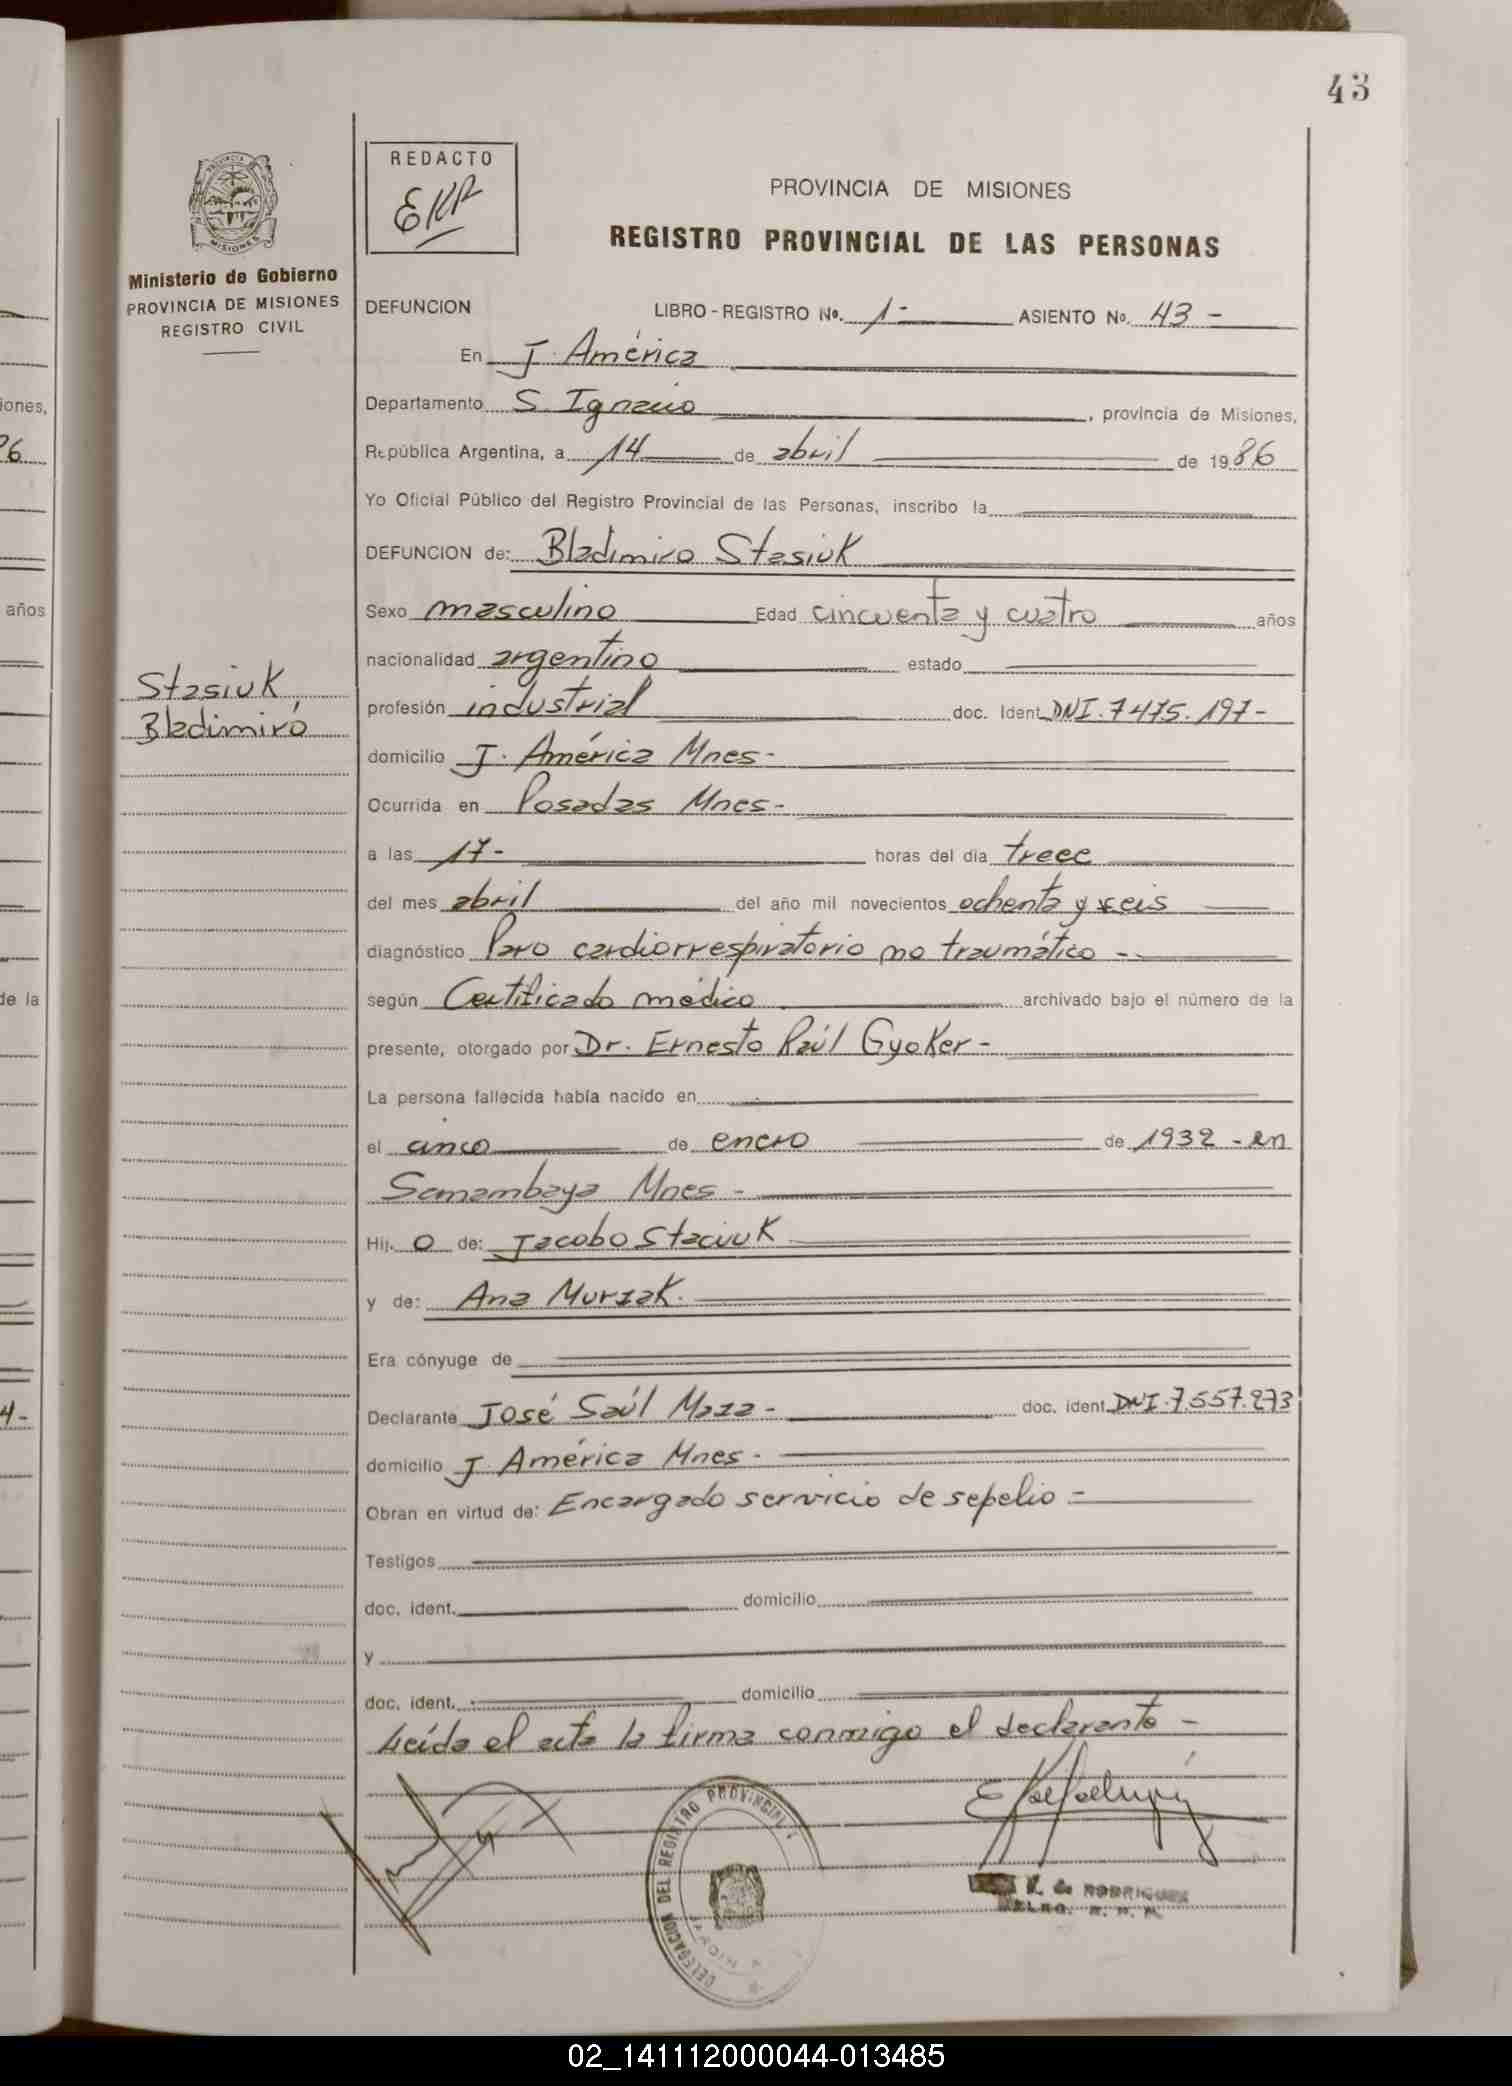 43
REDACTO
EKR
PROVINCIA DE MISIONES
REGISTRO PROVINCIAL DE LAS PERSONAS
Ministerio de Gobierno
PROVINCIA DE MISIONES
REGISTRO CIVIL
DEFUNCION LIBRO - REGISTRO Nº. 1- ASIENTO Nº. 43 -
En J. América
Departamento S. Ignacio, provincia de Misiones,
República Argentina, a 14 de abril de 1986
Yo Oficial Público del Registro Provincial de las Personas, inscribo la
DEFUNCION de: Bladimiro Stasiuk
Sexo masculino Edad cincuenta y cuatro años
nacionalidad argentino estado
Stasiuk,
Bladimiro
profesión industrial doc. Ident DNI. 7475.197-
domicilio J. América Mnes-
Ocurrida en Posadas Mnes-
a las 17- horas del día trece
del mes abril del año mil novecientos ochenta y seis
diagnóstico Paro cardiorrespiratorio no traumático -
según Certificado médico archivado bajo el número de la
presente, otorgado por Dr. Ernesto Raúl Gyoker -
La persona fallecida había nacido en
el cinco de enero de 1932 - en
Samambaya Mnes -
Hij. o de: Jacobo Staciuk
y de: Ana Murzak.
Era cónyuge de
Declarante José Saúl Maza - doc. ident. DNI. 7.557.273
domicilio J. América Mnes -
Obran en virtud de: Encargado servicio de sepelio -
Testigos
doc. ident. domicilio
y
doc. ident. domicilio
Leída el acta la firma conmigo el declarante -
DELEGACION DEL REGISTRO PROVINCIAL
K. de RODRIGUEZ
DELEG. R. P. P.
iones,
86
años
de la
4-
02_141112000044-013485